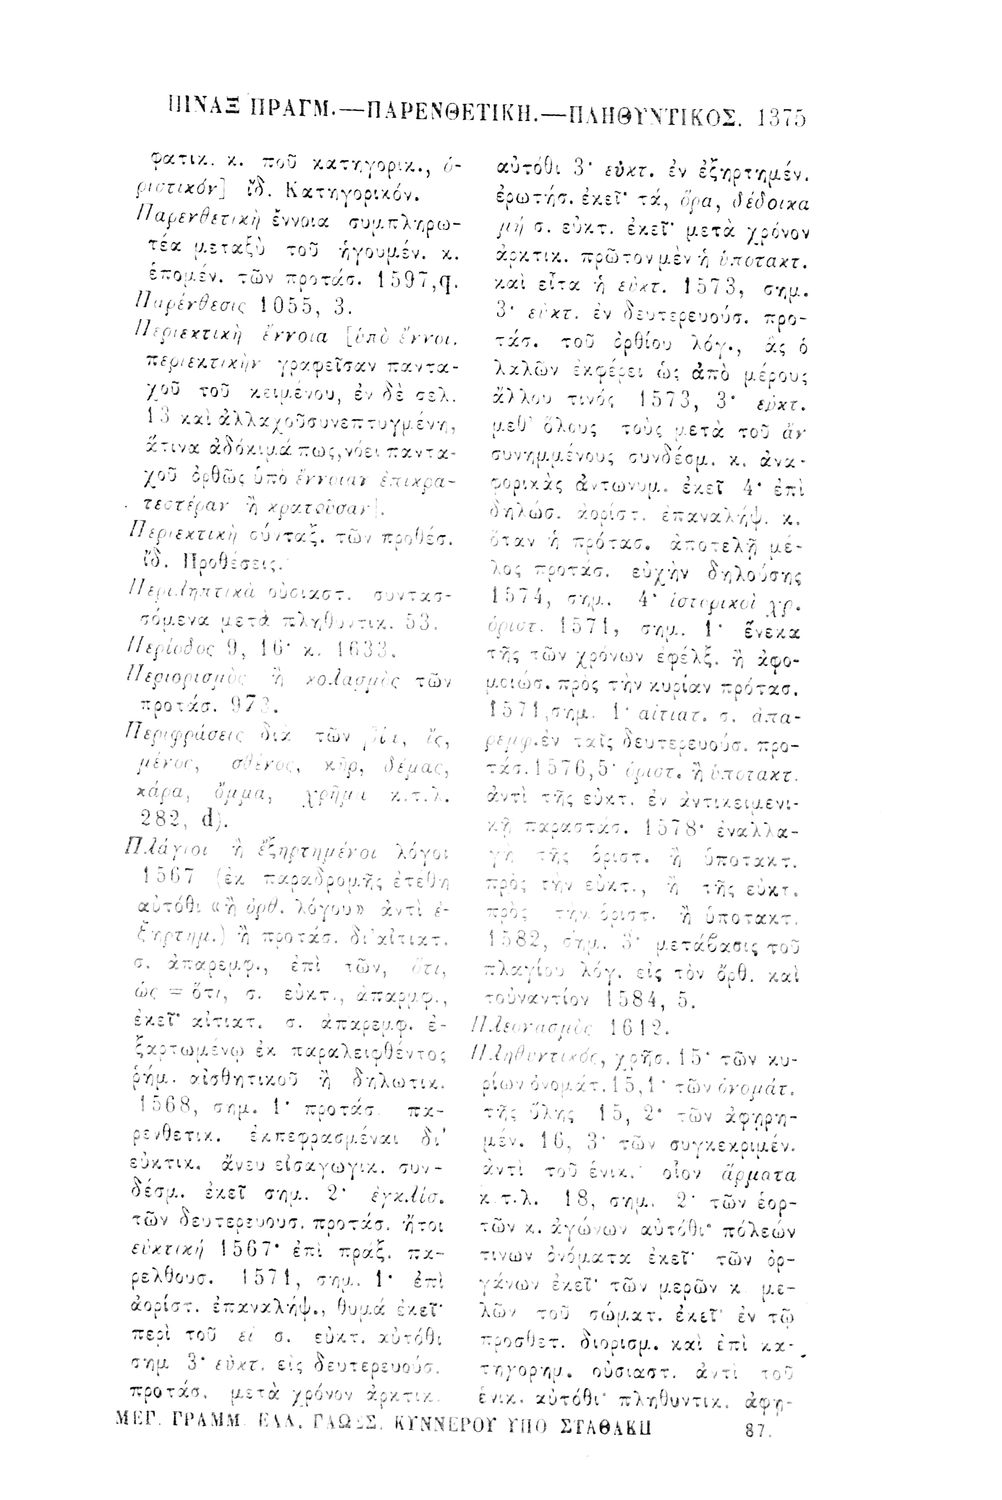 ΠΙΝΑΞ ΠΡΑΓΜ.—ΠΑΡΕΝΘΕΤΙΚΗ.—ΠΛΗΘΥΝΤΙΚΟΣ. 1375
φατικ. κ. ποῦ κατηγορικ., ὁ-
ριστικόν] ἰδ. Κατηγορικόν.
Παρενθετικὴ ἔννοια συμπληρω-
τέα μεταξὺ τοῦ ἡγουμέν. κ.
ἑπομέν. τῶν προτάσ. 1597,q.
Παρένθεσις 1055, 3.
Περιεκτικὴ ἔννοια [ὑπὸ ἔννοι.
περιεκτικὴν γραφεῖσαν παντα-
χοῦ τοῦ κειμένου, ἐν δὲ σελ.
13 καὶ ἀλλαχοῦ συνεπτυγμένη,
ἅτινα ἀδόκιμά πως, νόει παντα-
χοῦ ὀρθῶς ὑπὸ ἔννοιαν ἐπικρα-
τεστέραν ἢ κρατοῦσαν].
Περιεκτικὴ σύνταξ. τῶν προθέσ.
ἰδ. Προθέσεις.
Περιληπτικὰ οὐσιαστ. συντασ-
σόμενα μετὰ πληθυντικ. 53.
Περίοδος 9, 16· κ. 1633.
Περιορισμὸς ἢ κολασμὸς τῶν
προτάσ. 973.
Περιφράσεις διὰ τῶν βίη, ἴς,
μένος, σθένος, κῆρ, δέμας,
κάρα, ὄμμα, χρῆμα κ.τ.λ.
282, d).
Πλάγιοι ἢ ἐξηρτημένοι λόγοι
1567 (ἐκ παραδρομῆς ἐτέθη
αὐτόθι «ἢ ὀρθ. λόγου» ἀντὶ ἐ-
ξηρτημ.) ἢ προτάσ. δι' αἰτιατ.
σ. ἀπαρεμφ., ἐπὶ τῶν, ὅτι,
ὡς = ὅτι, σ. εὐκτ., ἀπαρμφ.,
ἐκεῖ· αἰτιατ. σ. ἀπαρεμφ. ἐ-
ξαρτωμένῳ ἐκ παραλειφθέντος
ῥήμ. αἰσθητικοῦ ἢ δηλωτικ.
1568, σημ. 1· προτάσ. πα-
ρενθετικ. ἐκπεφρασμέναι δι'
εὐκτικ. ἄνευ εἰσαγωγικ. συν-
δέσμ. ἐκεῖ σημ. 2· ἐγκλίσ.
τῶν δευτερευουσ. προτάσ. ἤτοι
εὐκτικὴ 1567· ἐπὶ πράξ. πα-
ρελθουσ. 1571, σημ. 1· ἐπὶ
ἀορίστ. ἐπαναλήψ., θυμά ἐκεῖ·
περὶ τοῦ εἰ σ. εὐκτ. αὐτόθι
σημ 3· εὐκτ. εἰς δευτερευούσ.
προτάσ. μετὰ χρόνον ἀρκτικ.
αὐτόθι 3· εὐκτ. ἐν ἐξηρτημέν.
ἐρωτήσ. ἐκεῖ· τά, ὅρα, δέδοικα
μὴ σ. εὐκτ. ἐκεῖ· μετὰ χρόνον
ἀρκτικ. πρῶτον μὲν ἡ ὑποτακτ.
καὶ εἶτα ἡ εὐκτ. 1573, σημ.
3· εὐκτ. ἐν δευτερευούσ. προ-
τάσ. τοῦ ὀρθίου λόγ., ἃς ὁ
λαλῶν ἐκφέρει ὡς ἀπὸ μέρους
ἄλλου τινός 1573, 3· εὐκτ.
μεθ' ὅλους τοὺς μετὰ τοῦ ἂν
συνημμένους συνδέσμ. κ. ἀνα-
φορικὰς ἀντωνυμ. ἐκεῖ 4· ἐπὶ
δηλώσ. ἀορίστ. ἐπαναλήψ. κ.
ὅταν ἡ πρότασ. ἀποτελῇ μέ-
λος προτάσ. εὐχὴν δηλούσης
1574, σημ. 4· ἱστορικοὶ χρ.
ὁριστ. 1571, σημ. 1· ἕνεκα
τῆς τῶν χρόνων ἐφέλξ. ἢ ἀφο-
μοιώσ. πρὸς τὴν κυρίαν πρότασ.
1571, σημ. 1· αἰτιατ. σ. ἀπα-
ρεμφ. ἐν ταῖς δευτερευούσ. προ-
τάσ. 1576,5· ὁριστ. ἢ ὑποτακτ.
ἀντὶ τῆς εὐκτ. ἐν ἀντικειμενι-
κῇ παραστάσ. 1578· ἐναλλα-
γὴ τῆς ὁριστ. ἢ ὑποτακτ.
πρὸς τὴν εὐκτ., ἢ τῆς εὐκτ.
πρὸς τὴν ὁριστ. ἢ ὑποτακτ.
1582, σημ. 3· μετάβασις τοῦ
πλαγίου λόγ. εἰς τὸν ὀρθ. καὶ
τοὐναντίον 1584, 5.
Πλεονασμὸς 1612.
Πληθυντικός, χρῆσ. 15· τῶν κυ-
ρίων ὀνομάτ. 15,1· τῶν ὀνομάτ.
τῆς ὕλης 15, 2· τῶν ἀφῃρη-
μέν. 16, 3· τῶν συγκεκριμέν.
ἀντὶ τοῦ ἑνικ. οἷον ἅρματα
κ.τ.λ. 18, σημ. 2· τῶν ἑορ-
τῶν κ. ἀγώνων αὐτόθι· πόλεών
τινων ὀνόματα ἐκεῖ· τῶν ὀρ-
γάνων ἐκεῖ· τῶν μερῶν κ με-
λῶν τοῦ σώματ. ἐκεῖ· ἐν τῷ
προσθετ. διορισμ. καὶ ἐπὶ κα-
τηγορημ. οὐσιαστ. ἀντὶ τοῦ
ἑνικ. αὐτόθι· πληθυντικ. ἀφη-
ΜΕΓ. ΓΡΑΜΜ. ΕΛΛ. ΓΛΩΣΣ. ΚΥΝΝΕΡΟΥ ΥΠΟ ΣΤΑΘΑΚΗ 87.